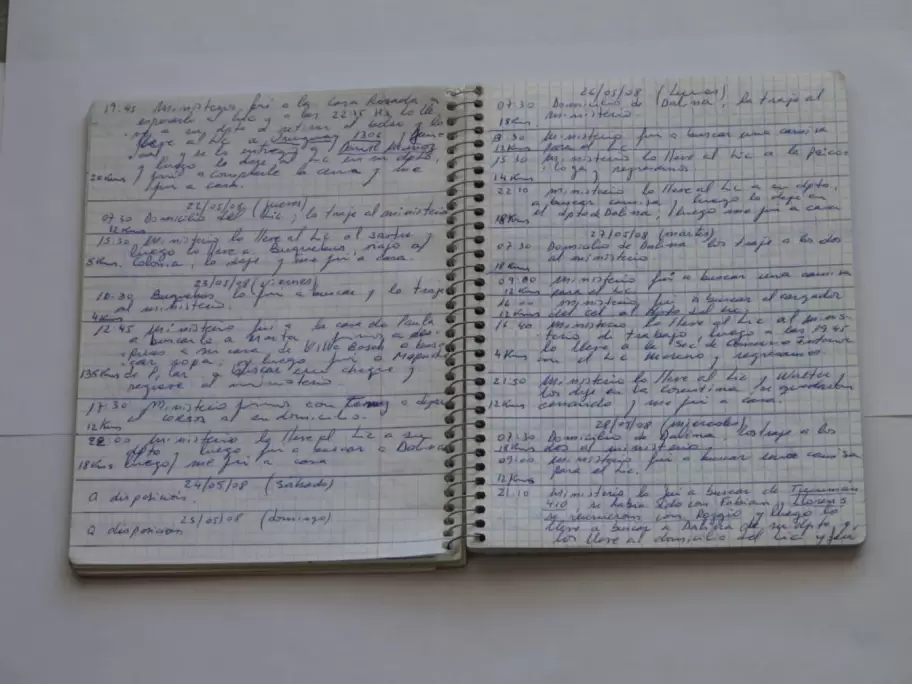 19:45 Ministerio, fui a la casa Rosada a
esperarlo al Lic y a las 22:35 Hs lo lle-
ve a su dpto a retirar el bolso y lo
lleve al Lic a Uruguay 1306
y se lo entregó
y luego lo deje al Lic en su dpto,
20Kms fui a comprarle la cena y me
fui a casa.
22/05/08 (jueves)
07:30 Domicilio del Lic, lo traje al ministerio
12Kms
15:30 Ministerio lo lleve al Lic al
luego lo lleve a Buquebus, viajo a
8Kms Colonia, lo deje y me fui a casa.
23/05/08 (viernes)
10:30 Buquebus lo fui a buscar y lo traje
al ministerio.
4Kms
12:45 Ministerio fui a la casa de Paula
a buscarla a Marta
a su casa de Villa Bosch a
ropa, y luego fui a
135Kms de Pilar a buscar un cheque y
regrese al ministerio
17:30 Ministerio fuimos con a dejar
cosas al su domicilio.
12Kms
22:00 Ministerio lo lleve al Lic a su
dpto luego fui a buscar a Dalina
18Kms luego me fui a casa
24/05/08 (sabado)
a disposición.
25/05/08 (domingo)
a disposicion
26/05/08 (Lunes)
07:30 Domicilio de Dalina, lo traje al
18Kms ministerio.
9:30 Ministerio fui a buscar una camisa
12Kms para el Lic
15:30 Ministerio lo lleve al Lic a la psico-
loga y regresamos.
14Kms
22:10 Ministerio lo lleve al Lic a su dpto,
a buscar camisa y luego lo deje en
18Kms el dpto de Dalina, luego me fui a casa
27/05/08 (martes)
07:30 Domicilio de Dalina los traje a los dos
al ministerio
18Kms
09:00 Ministerio fui a buscar una camisa
12Kms para el Lic.
16:00 Ministerio fui a buscar el cargador
12Kms del cel al dpto del Lic.
16:40 Ministerio lo lleve al Lic al Minis-
terio de trabajo, luego a las 19:45
lo lleve a la Sec de Comercio Interior
4Kms con el Lic Moreno y regresamos.
21:50 Ministerio lo lleve al Lic y Walter
los deje en la Rosadita, se quedaron
12Kms cenando y me fui a casa.
28/05/08 (miercoles)
07:30 Domicilio de Dalina, los traje a los
18Kms dos al ministerio
09:00 Ministerio fui a buscar una camisa
para el Lic.
12Kms
21:10 Ministerio lo fui a buscar de Tucuman
410, se habia ido con Fabian Llorens
se reunieron con Poggio y luego lo
lleve a buscar a Dalina de su dpto y
los lleve al domicilio del Lic y fui